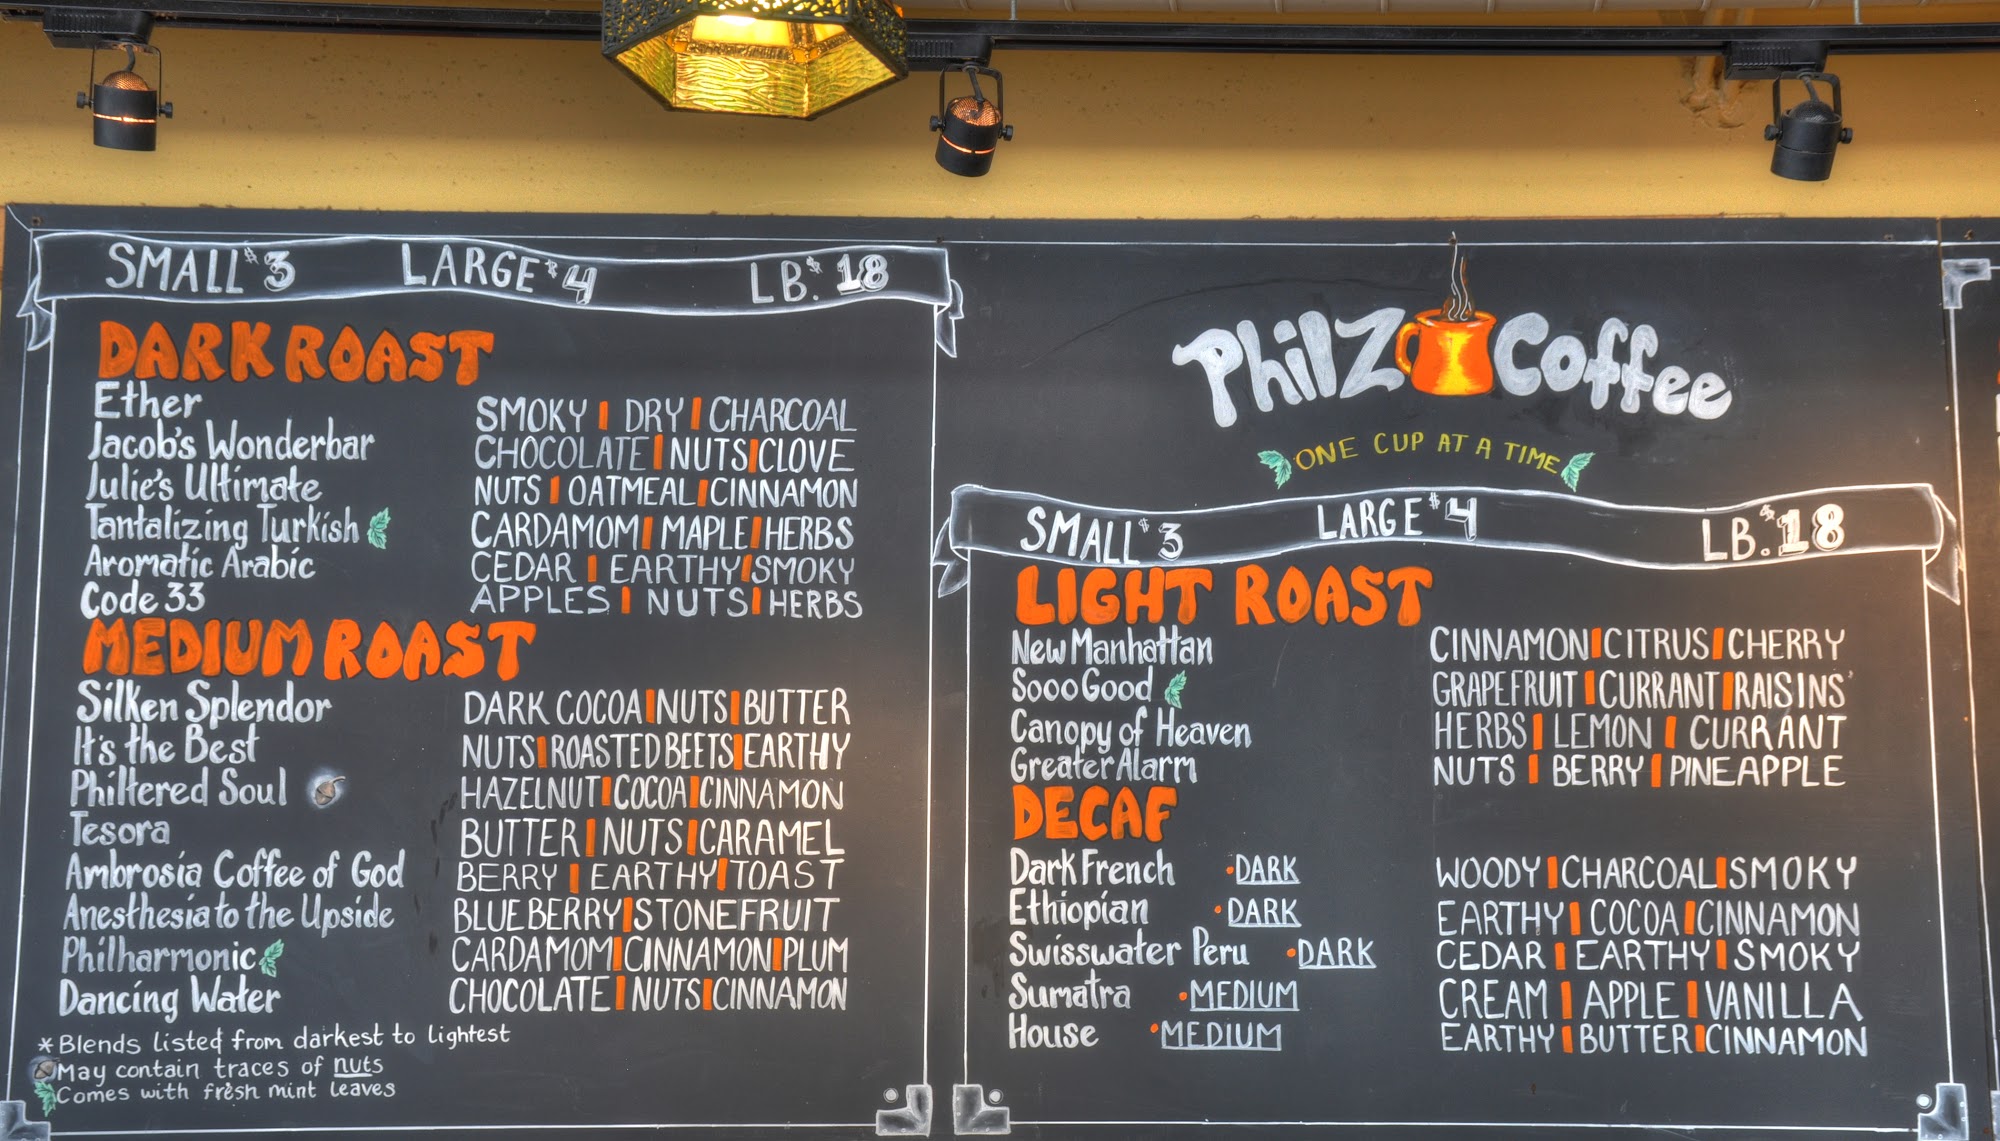 SMALL $3 LARGE $4 LB. $18
DARK ROAST
Ether SMOKY | DRY | CHARCOAL
Jacob's Wonderbar CHOCOLATE | NUTS | CLOVE
Julie's Ultimate NUTS | OATMEAL | CINNAMON
Tantalizing Turkish CARDAMOM | MAPLE | HERBS
Aromatic Arabic CEDAR | EARTHY | SMOKY
Code 33 APPLES | NUTS | HERBS
MEDIUM ROAST
Silken Splendor DARK COCOA | NUTS | BUTTER
It's the Best NUTS | ROASTED BEETS | EARTHY
Philtered Soul HAZELNUT | COCOA | CINNAMON
Tesora BUTTER | NUTS | CARAMEL
Ambrosia Coffee of God BERRY | EARTHY | TOAST
Anesthesia to the Upside BLUEBERRY | STONEFRUIT
Philharmonic CARDAMOM | CINNAMON | PLUM
Dancing Water CHOCOLATE | NUTS | CINNAMON
*Blends listed from darkest to lightest
May contain traces of nuts
Comes with fresh mint leaves
Philz Coffee
ONE CUP AT A TIME
SMALL $3 LARGE $4 LB. $18
LIGHT ROAST
New Manhattan CINNAMON | CITRUS | CHERRY
Sooo Good GRAPEFRUIT | CURRANT | RAISINS'
Canopy of Heaven HERBS | LEMON | CURRANT
Greater Alarm NUTS | BERRY | PINEAPPLE
DECAF
Dark French •DARK WOODY | CHARCOAL | SMOKY
Ethiopian •DARK EARTHY | COCOA | CINNAMON
Swisswater Peru •DARK CEDAR | EARTHY | SMOKY
Sumatra •MEDIUM CREAM | APPLE | VANILLA
House •MEDIUM EARTHY | BUTTER | CINNAMON